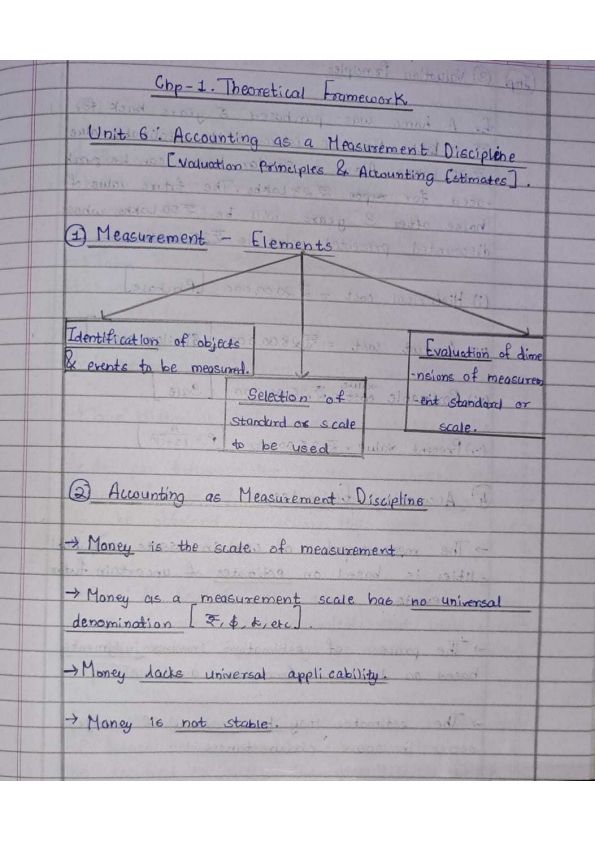 Chp-1. Theoretical Framework
Unit 6 : Accounting as a Measurement Discipline
[Valuation Principles & Accounting Estimates].
① Measurement - Elements
Identification of objects
& events to be measured.
Selection of
standard or scale
to be used
Evaluation of dime
-nsions of measurem
-ent standard or
scale.
② Accounting as Measurement Discipline
→ Money is the scale of measurement.
→ Money as a measurement scale has no universal
denomination [ ₹, $, £, etc].
→ Money lacks universal applicability.
→ Money is not stable.